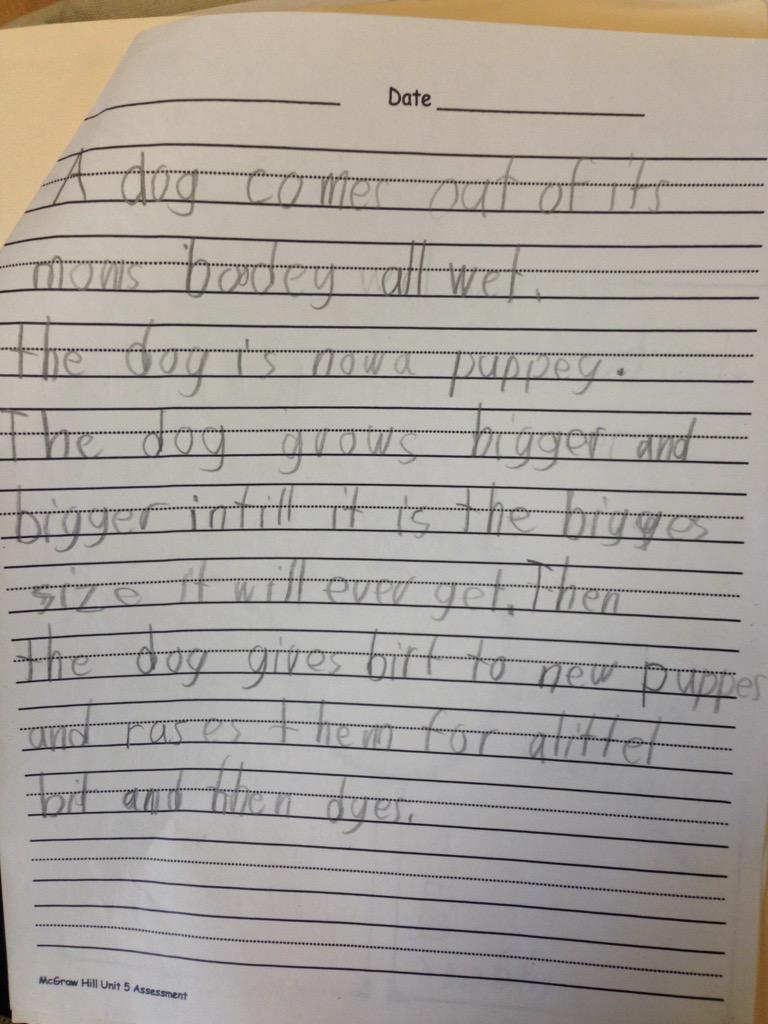 Date
A dog comes out of its
moms boodey all wet.
the dog is now a puppey.
The dog grows bigger and
bigger intill it is the bigges
size it will ever get. Then
the dog gives birt to new puppes
and rases them for alittel
bit and then dyes.
McGraw Hill Unit 5 Assessment